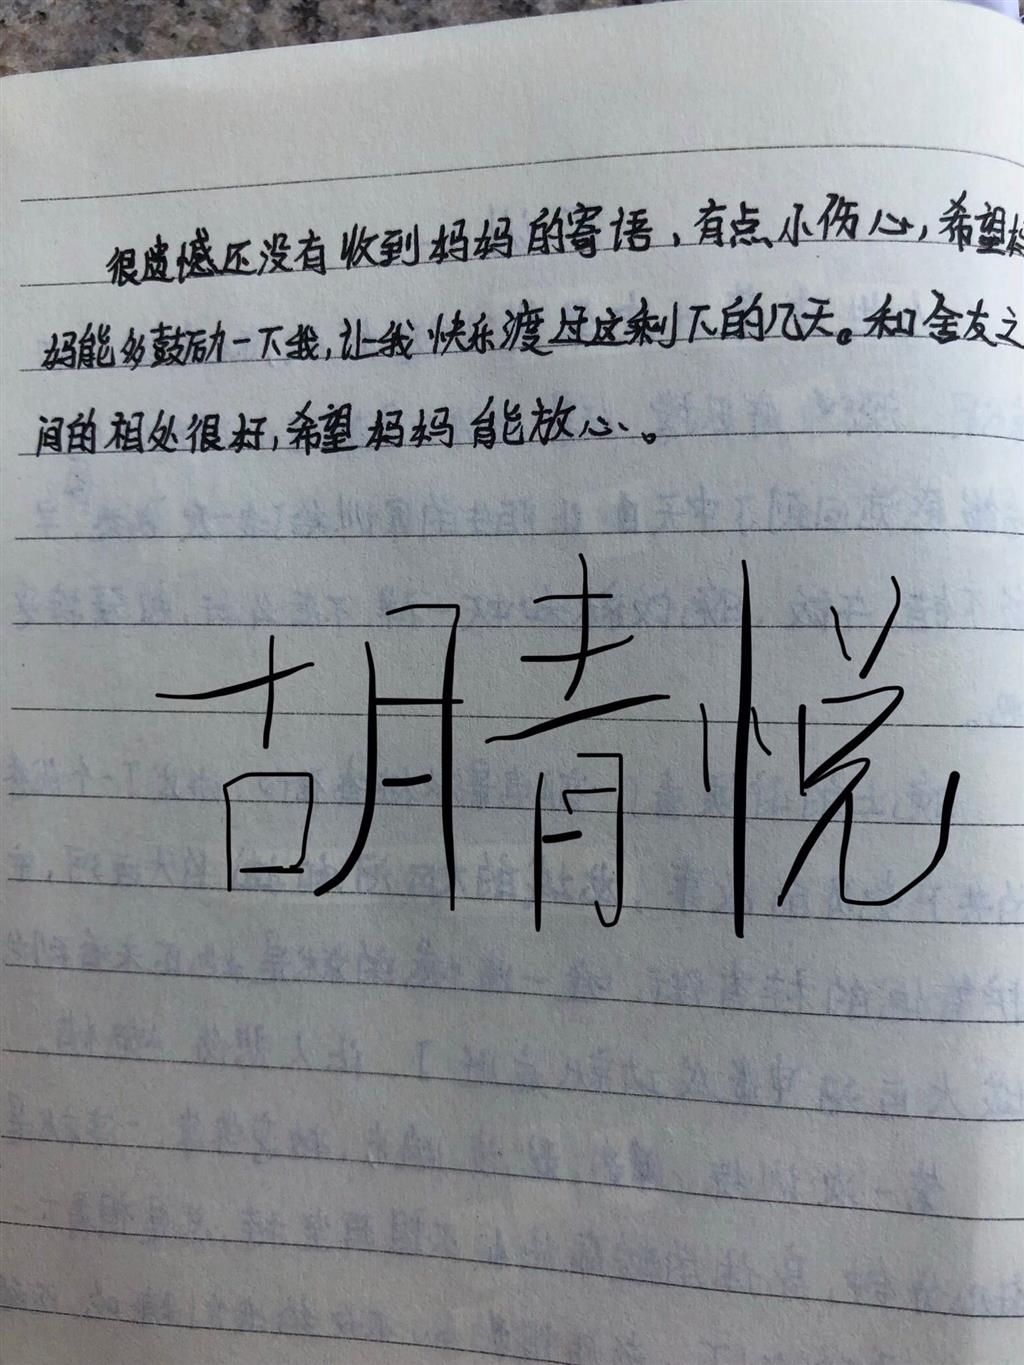 很遗憾还没有收到妈妈的寄语，有点小伤心，希望妈
妈能多鼓励一下我，让我快乐渡过这剩下的几天。和舍友之
间的相处很好，希望妈妈能放心。
胡青悦